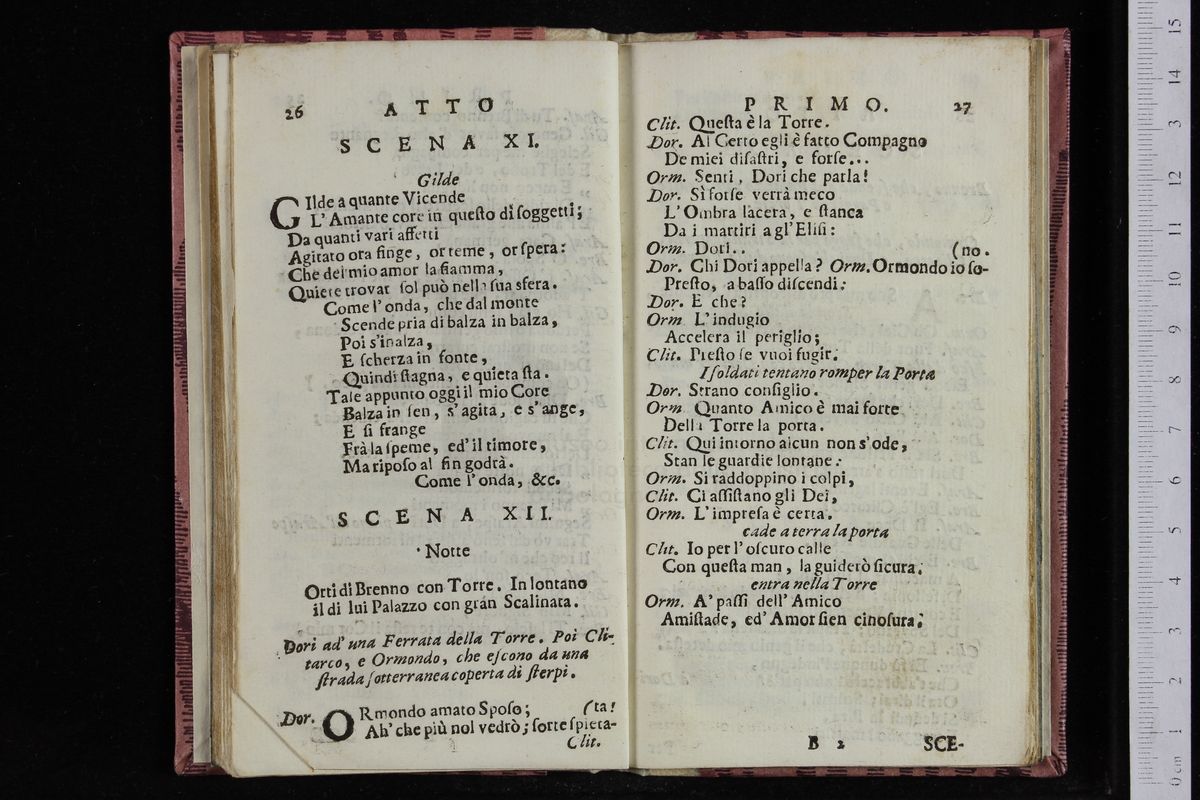 26 ATTO
SCENA XI.
Gilde
GIlde a quante Vicende
L'Amante core in queſto dì ſoggetti;
Da quanti vari affetti
Agitato ora finge, or teme, or ſpera:
Che del mio amor la fiamma,
Quiete trovar ſol può nella ſua sfera.
Come l'onda, che dal monte
Scende pria di balza in balza,
Poi s'inalza,
E ſcherza in fonte,
Quindi ſtagna, e quieta ſta.
Tale appunto oggi il mio Core
Balza in ſen, s'agita, e s'ange,
E ſi frange
Frà la ſpeme, ed'il timore,
Ma ripoſo al fin godrà.
Come l'onda, &c.
SCENA XII.
Notte
Orti di Brenno con Torre. In lontano
il di lui Palazzo con gran Scalinata.
Dori ad'una Ferrata della Torre. Poi Cli-
tarco, e Ormondo, che eſcono da una
ſtrada ſotterranea coperta di ſterpi.
Dor. ORmondo amato Spoſo; (ta!
Ah' che più nol vedrò; ſorte ſpieta-
Clit.
PRIMO. 27
Clit. Queſta è la Torre.
Dor. Al Certo egli è fatto Compagno
De miei diſaſtri, e forſe...
Orm. Senti, Dori che parla!
Dor. Sì forſe verrà meco
L'Ombra lacera, e ſtanca
Da i martiri agl'Eliſi:
Orm. Dori.. (no.
Dor. Chi Dori appella? Orm. Ormondo io ſo-
Preſto, a baſſo diſcendi:
Dor. E che?
Orm L'indugio
Accelera il periglio;
Clit. Preſto ſe vuoi fugir.
I ſoldati tentano romper la Porta
Dor. Strano conſiglio.
Orm Quanto Amico è mai forte
Della Torre la porta.
Clit. Qui intorno alcun non s'ode,
Stan le guardie lontane.
Orm. Si raddoppino i colpi,
Clit. Ci aſſiſtano gli Dei,
Orm. L'impreſa è certa.
cade a terra la porta
Clit. Io per l'oſcuro calle
Con queſta man, la guiderò ſicura.
entra nella Torre
Orm. A' paſſi dell'Amico
Amiſtade, ed'Amor ſien cinoſura.
B 2 SCE-
0 cm 1 2 3 4 5 6 7 8 9 10 11 12 13 14 15